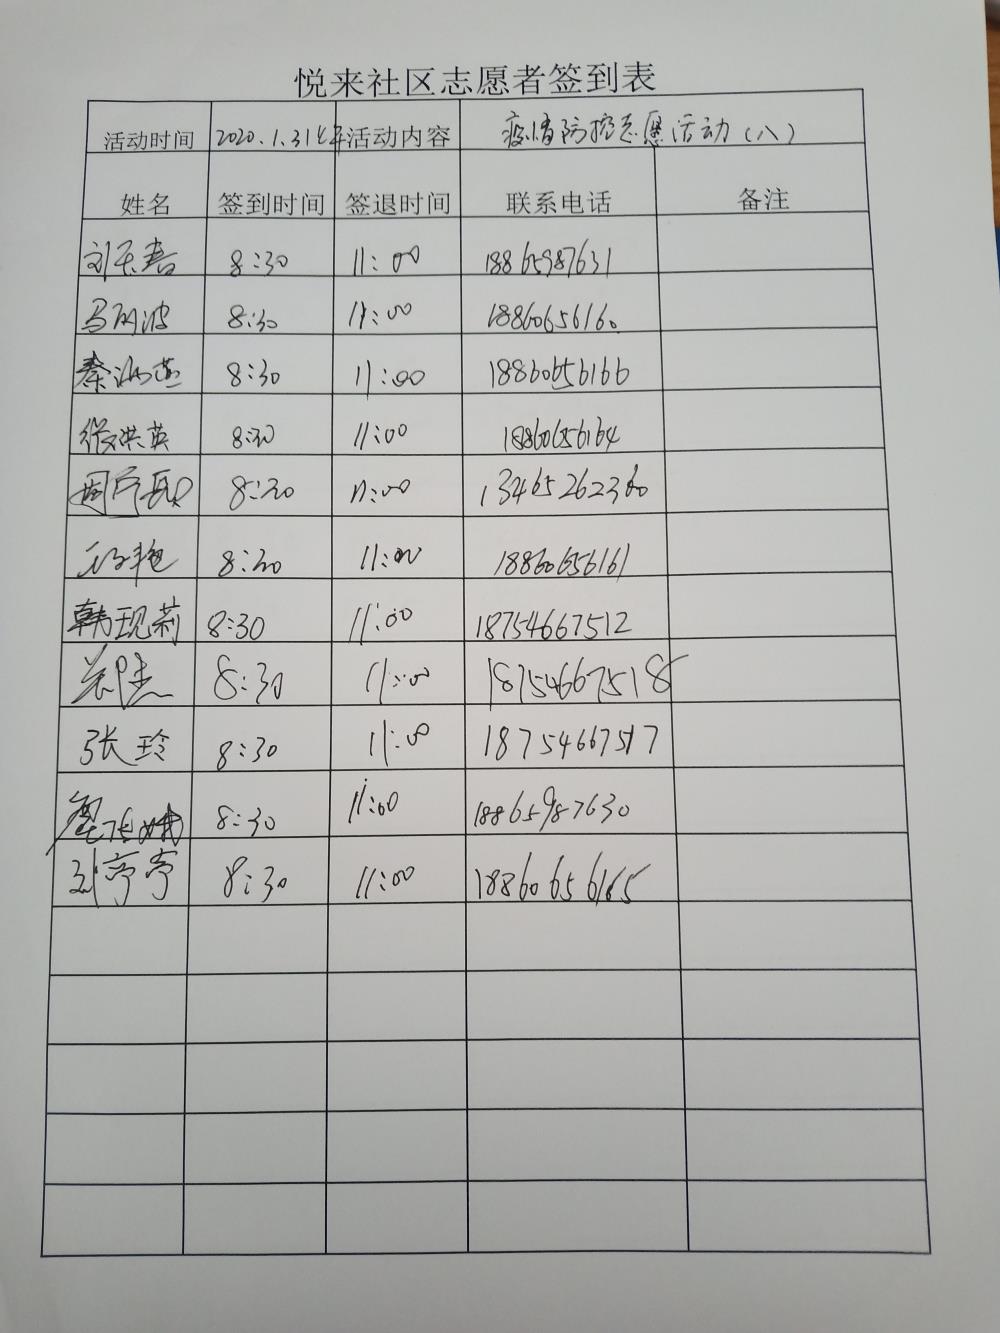 悦来社区志愿者签到表
活动时间 2020.1.31上午 活动内容 疫情防控志愿活动(八)
姓名 签到时间 签退时间 联系电话 备注
刘 8:30 11:00 18865987631
马丽波 8:30 11:00 18860656160
秦 燕 8:30 11:00 18860656166
徐洪英 8:30 11:00 18860656164
周 8:30 11:00 13465262360
艳 8:30 11:00 18860656161
韩现莉 8:30 11:00 18754667512
8:30 11:00 18754667518
张玲 8:30 11:00 18754667517
8:30 11:00 18865987630
刘亭亭 8:30 11:00 18860656165